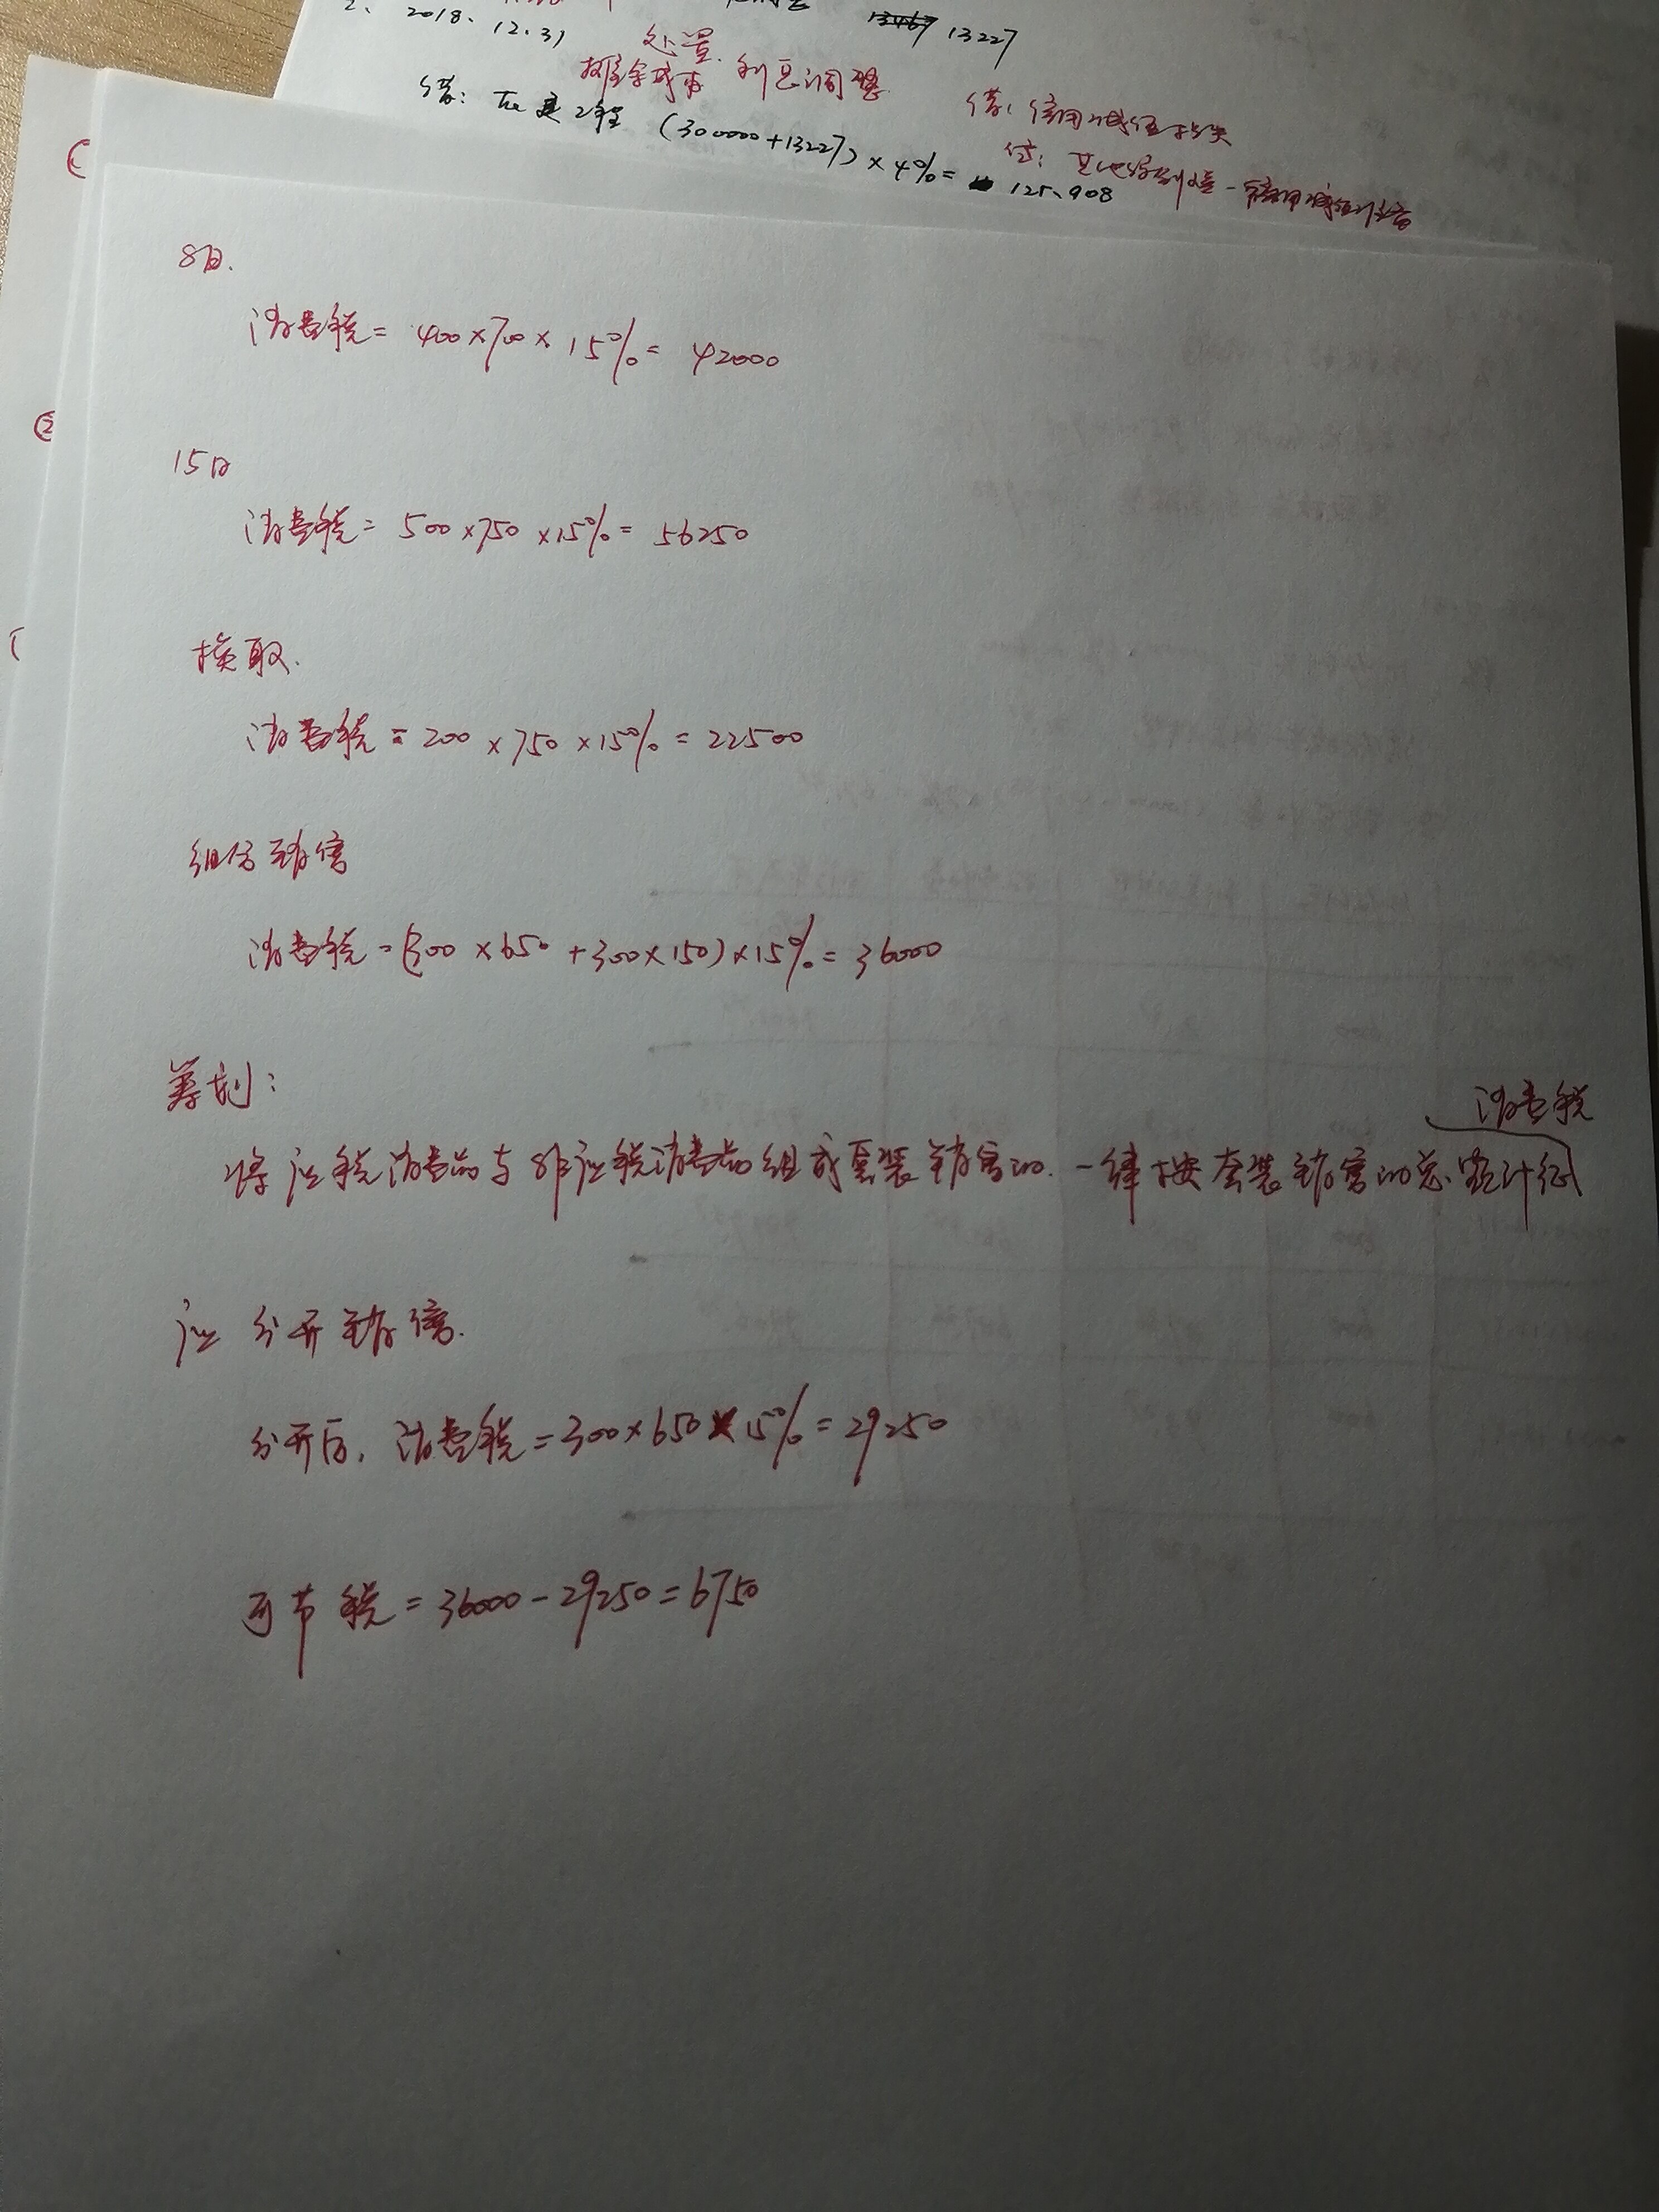 2、 2018、12.31 13227
处置
摊余成本 利息调整
借: 在建工程 (300000+13227)×4%= 125、908
借: 信用减值损失
贷: 其他综合收益-信用减值准备
8日.
消费税= 400×700×15%= 42000
15日
消费税= 500×750×15%= 56250
换取.
消费税= 200×750×15%= 22500
组合销售
消费税=(300×650+300×150)×15%= 36000
筹划:
消费税
将应税消费品与非应税消费品组成套装销售的.一律按套装销售的总额计征
应分开销售.
分开后,消费税=300×650×15%=29250
可节税=36000-29250=6750